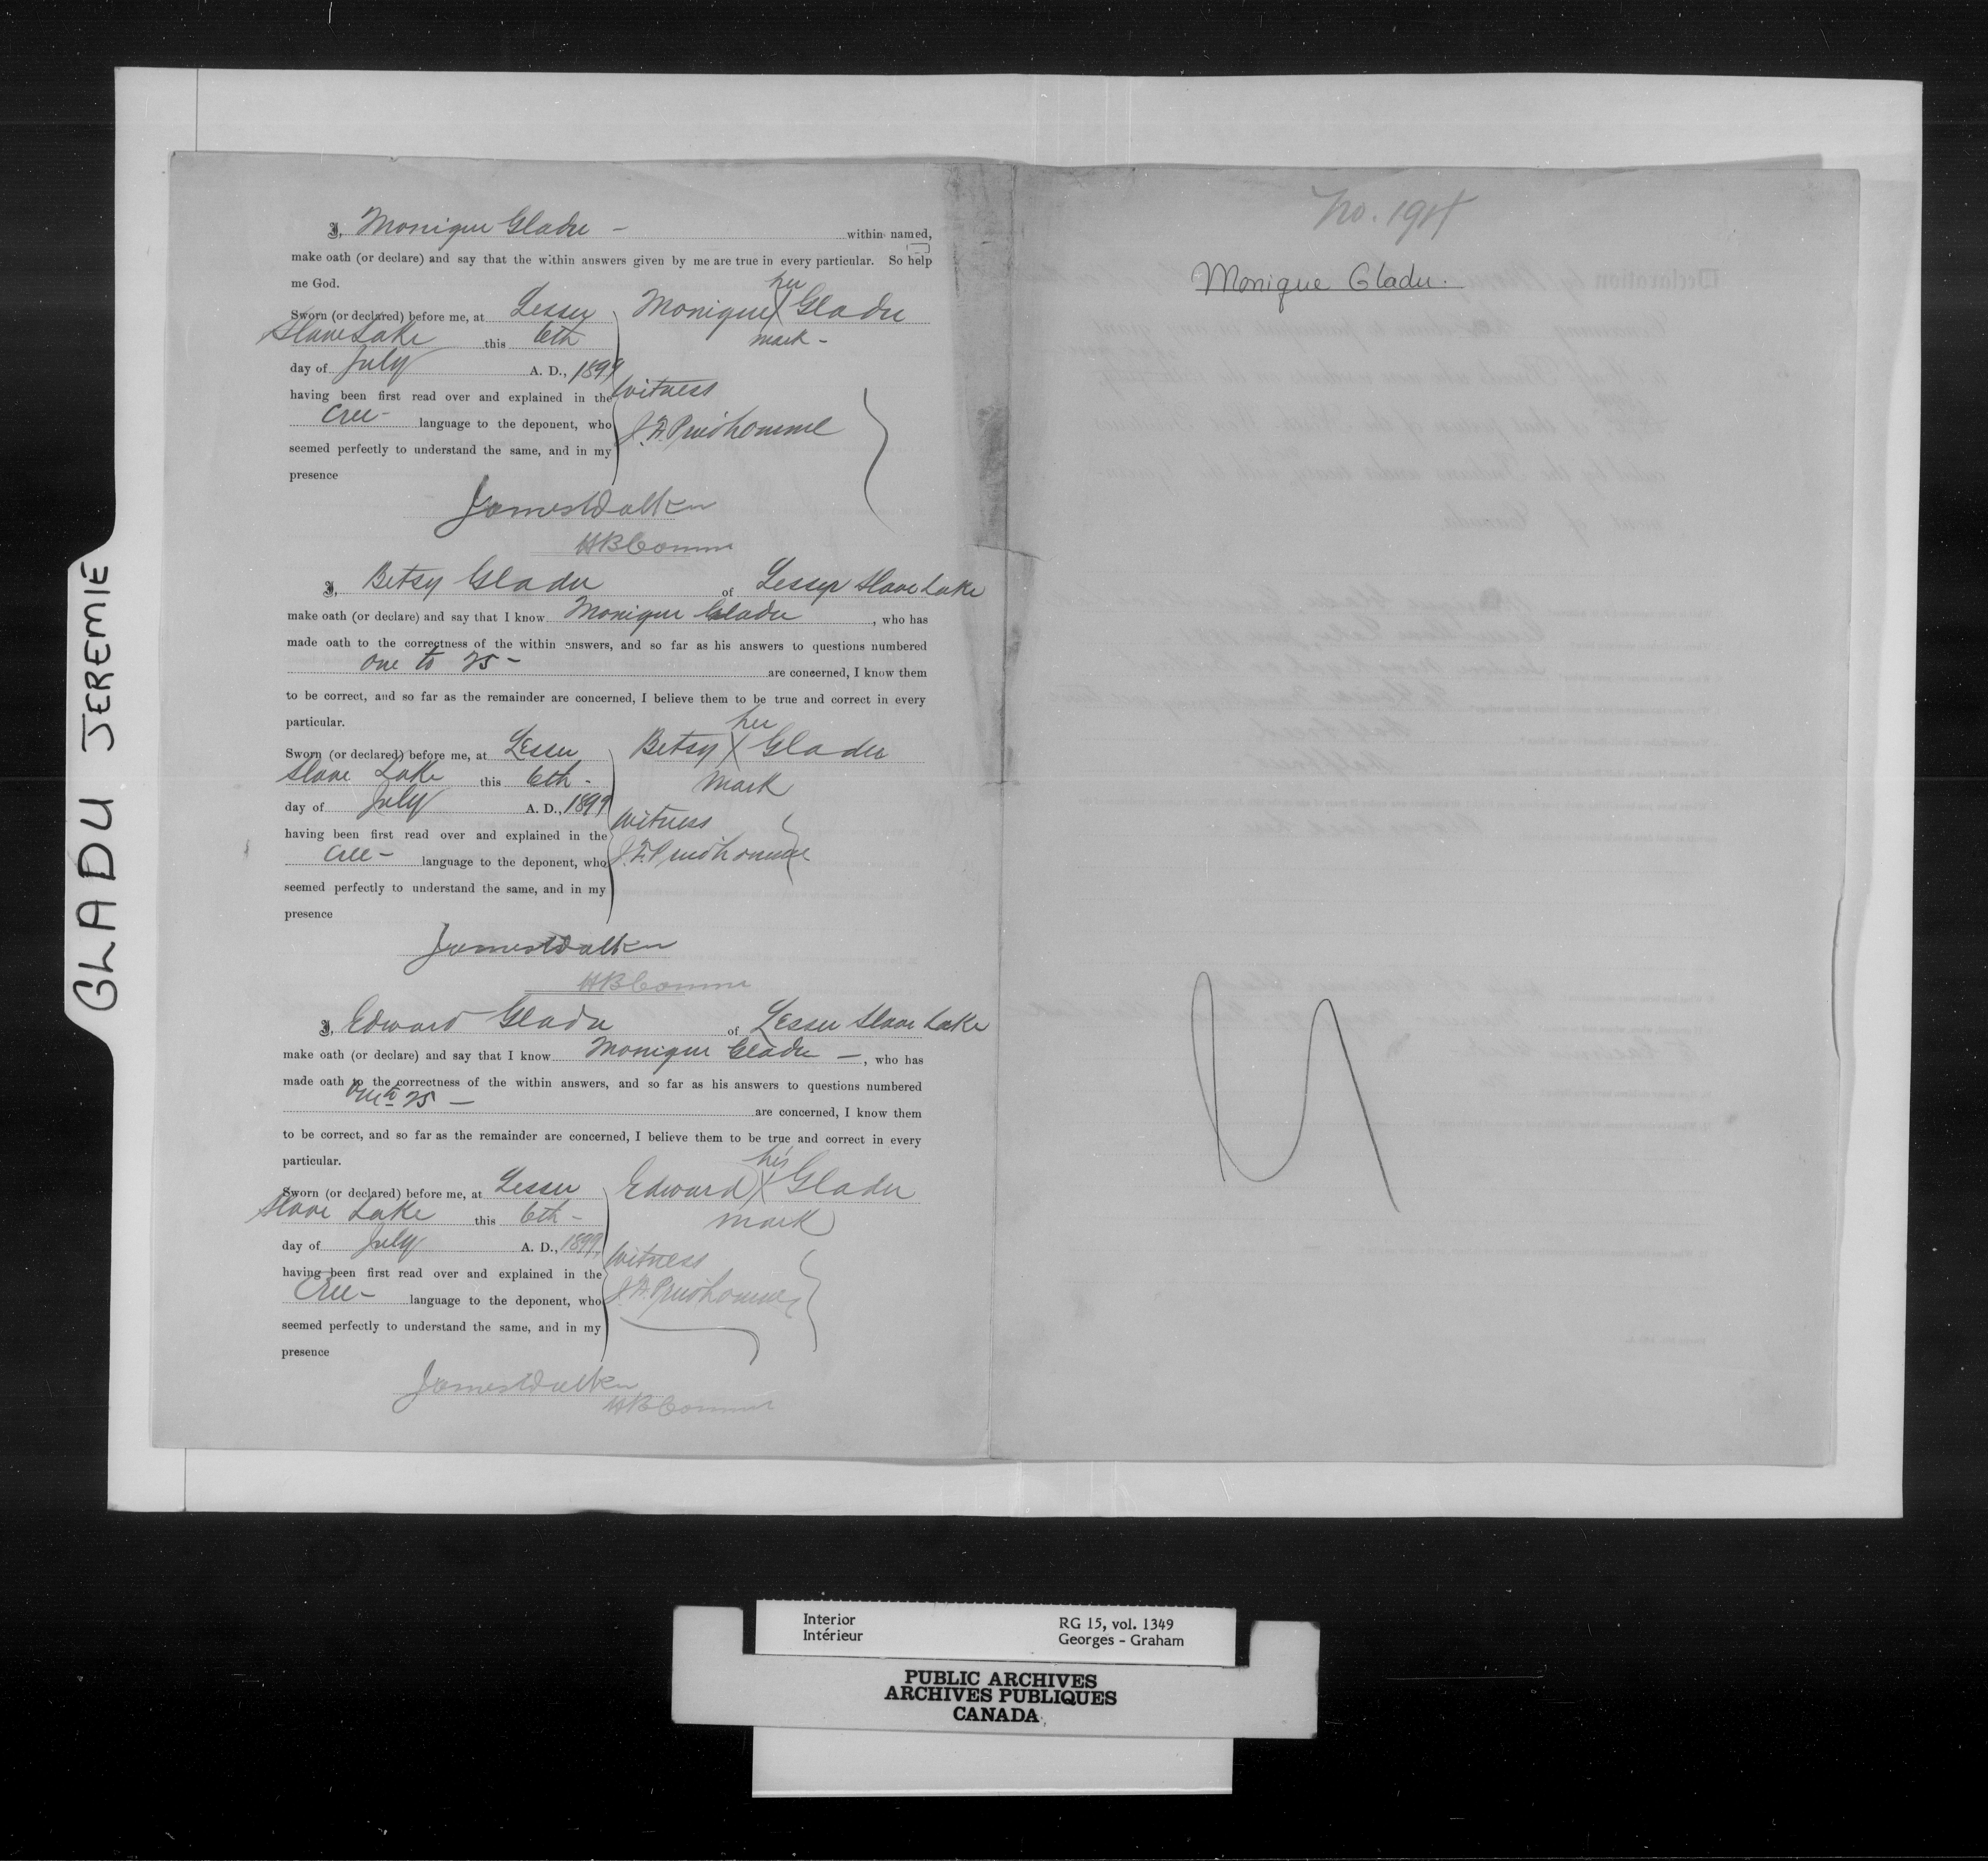 GLADU JEREMIE
I, Monique Gladu - within named,
make oath (or declare) and say that the within answers given by me are true in every particular. So help
me God.
Sworn (or declared) before me, at Lesser
Slave Lake this 6th
day of July A. D., 1899
having been first read over and explained in the
Cree - language to the deponent, who
seemed perfectly to understand the same, and in my
presence
her
Monique X Gladu
mark -
Witness
J. F. Prudhomme
James Walker
HB Comm
I, Betsy Gladu of Lesser Slave Lake
make oath (or declare) and say that I know Monique Gladu, who has
made oath to the correctness of the within answers, and so far as his answers to questions numbered
One to 25 - are concerned, I know them
to be correct, and so far as the remainder are concerned, I believe them to be true and correct in every
particular.
Sworn (or declared) before me, at Lesser
Slave Lake this 6th -
day of July A. D., 1899
having been first read over and explained in the
Cree - language to the deponent, who
seemed perfectly to understand the same, and in my
presence
her
Betsy X Gladu
mark
Witness
J. F. Prudhomme
James Walker
HB Comm
I, Edward Gladu of Lesser Slave Lake
make oath (or declare) and say that I know Monique Gladu -, who has
made oath to the correctness of the within answers, and so far as his answers to questions numbered
One to 25 - are concerned, I know them
to be correct, and so far as the remainder are concerned, I believe them to be true and correct in every
particular.
Sworn (or declared) before me, at Lesser
Slave Lake this 6th -
day of July A. D., 1899
having been first read over and explained in the
Cree - language to the deponent, who
seemed perfectly to understand the same, and in my
presence
his
Edward X Gladu
mark
Witness
J. F. Prudhomme
James Walker
HB Comm
No.
Monique Gladu.
Interior
Intérieur
RG 15, vol. 1349
Georges - Graham
PUBLIC ARCHIVES
ARCHIVES PUBLIQUES
CANADA